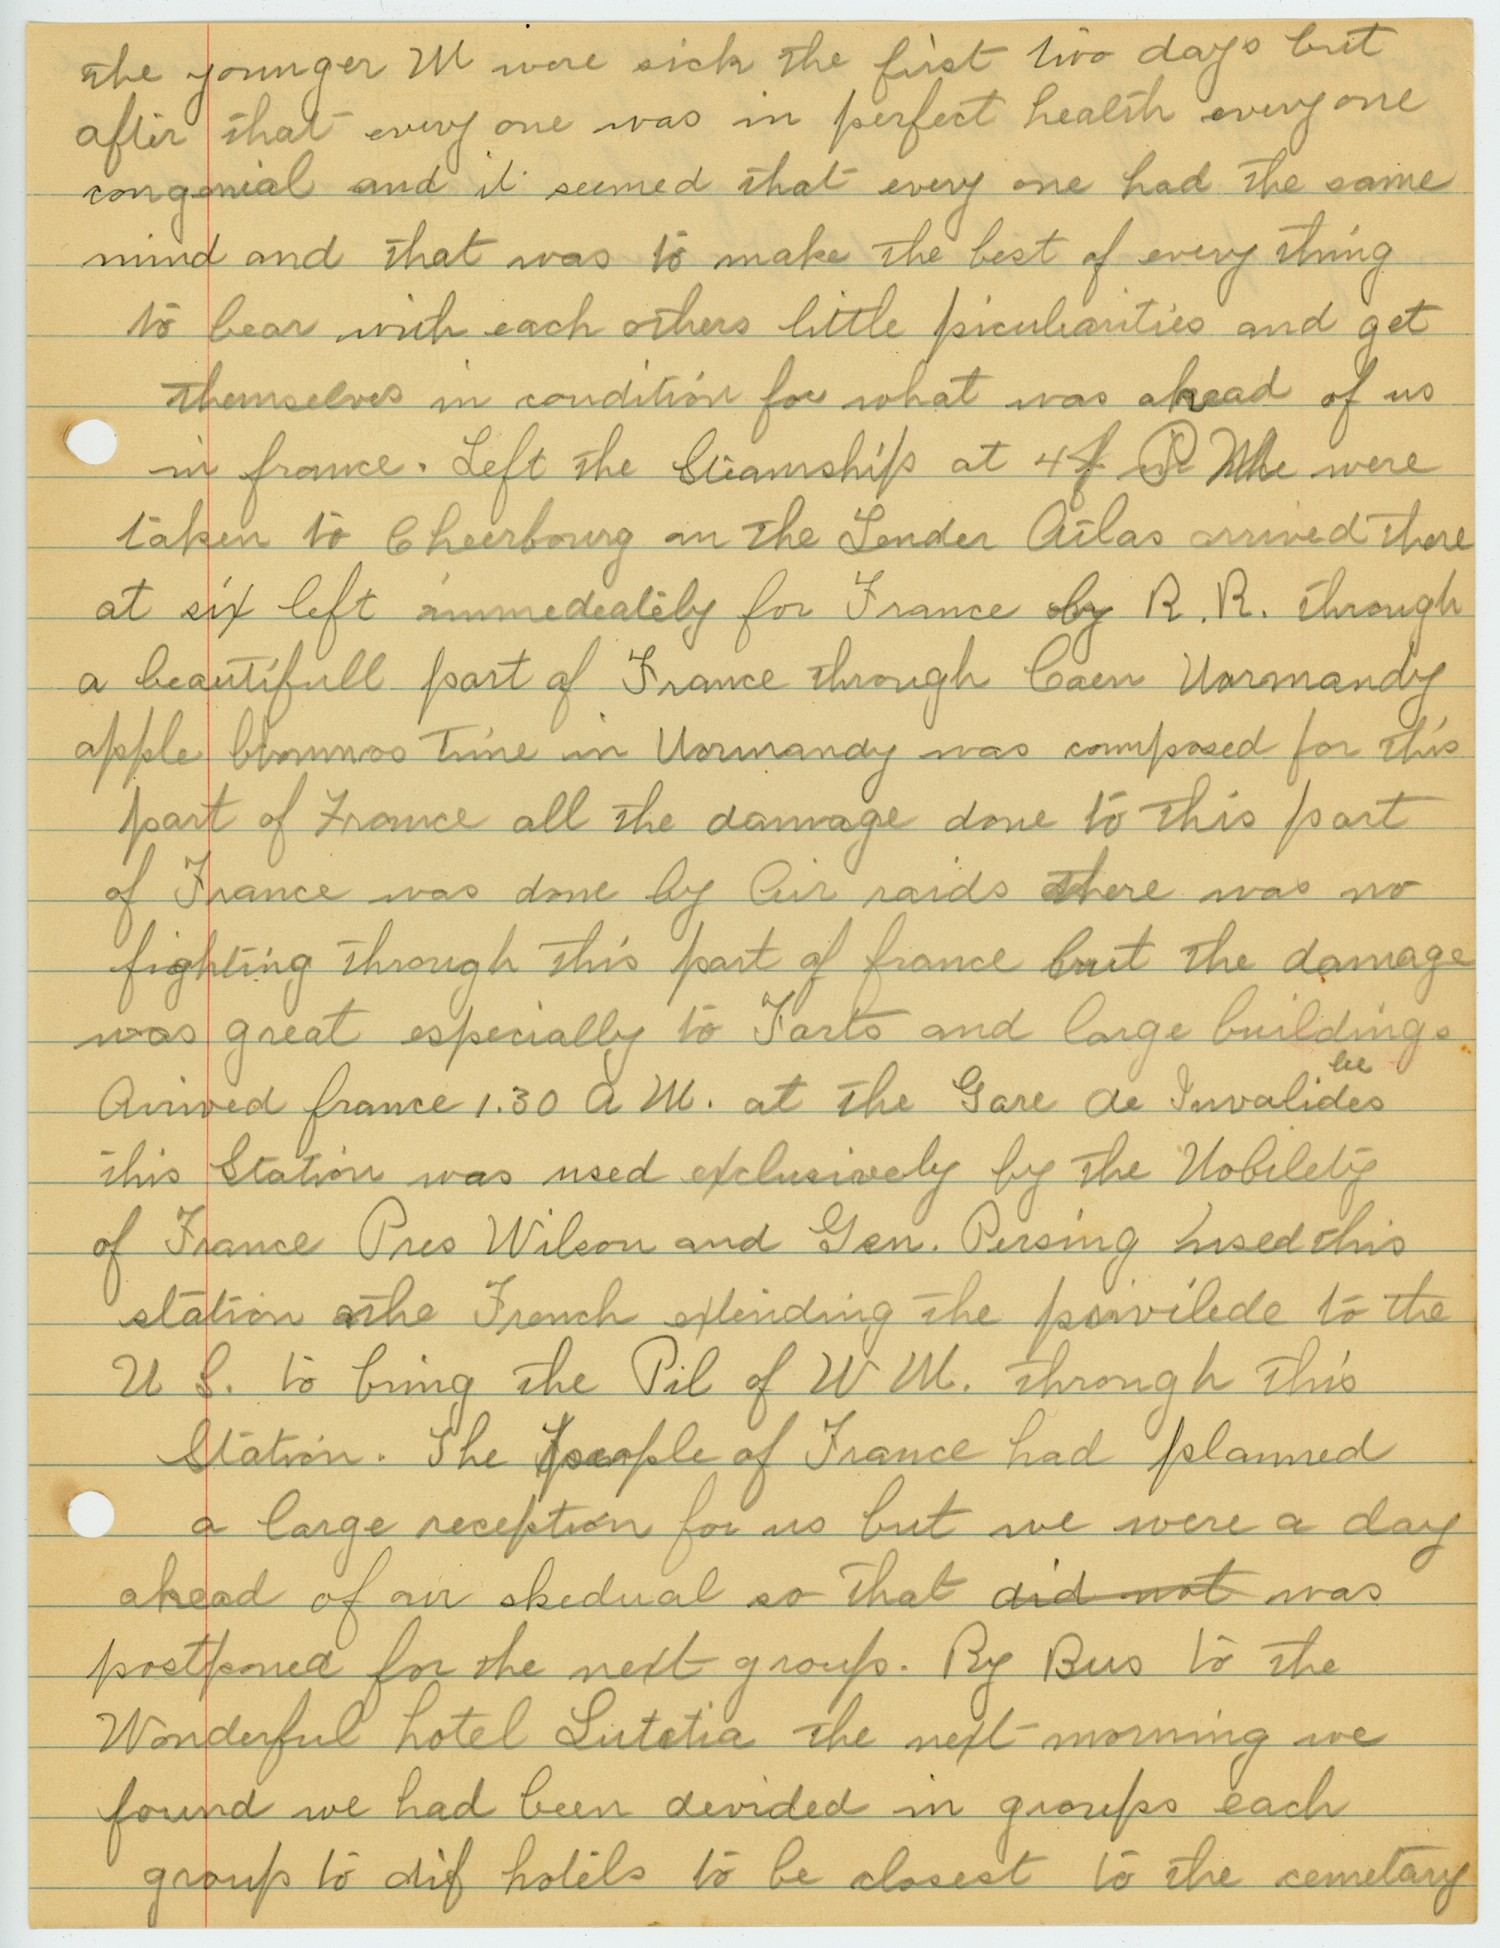 the younger M were sick the first two days but
after that every one was in perfect health every one
congenial and it seemed that every one had the same
mind and that was to make the best of every thing
to bear with each others little piculiarities and get
themselves in condition for what was ahead of us
in france. Left the Steamship at 4 P M We were
taken to Cheerbourg on the Tender Atlas arrived there
at six left immedeately for France by R.R. through
a beautifull part of France through Caen Normandy
apple blommos Time in Normandy was composed for this
part of France all the damage done to this part
of France was done by Air raids there was no
fighting through this part of france but the damage
was great especially to Farts and large buildings
Arrived france 1.30 A M. at the Gare de Invalides
this Station was used exclusively by the Nobilety
of France Pres Wilson and Gen. Persing used this
station the French extending the privilede to the
U S. to bring the Pil of W M. through this
Station. The people of France had planned
a large reception for us but we were a day
ahead of our skedual so that did not was
postponed for the next group. By Bus to the
Wonderful hotel Lutetia the next morning we
found we had been devided in groups each
group to dif hotels to be closest to the cemetary